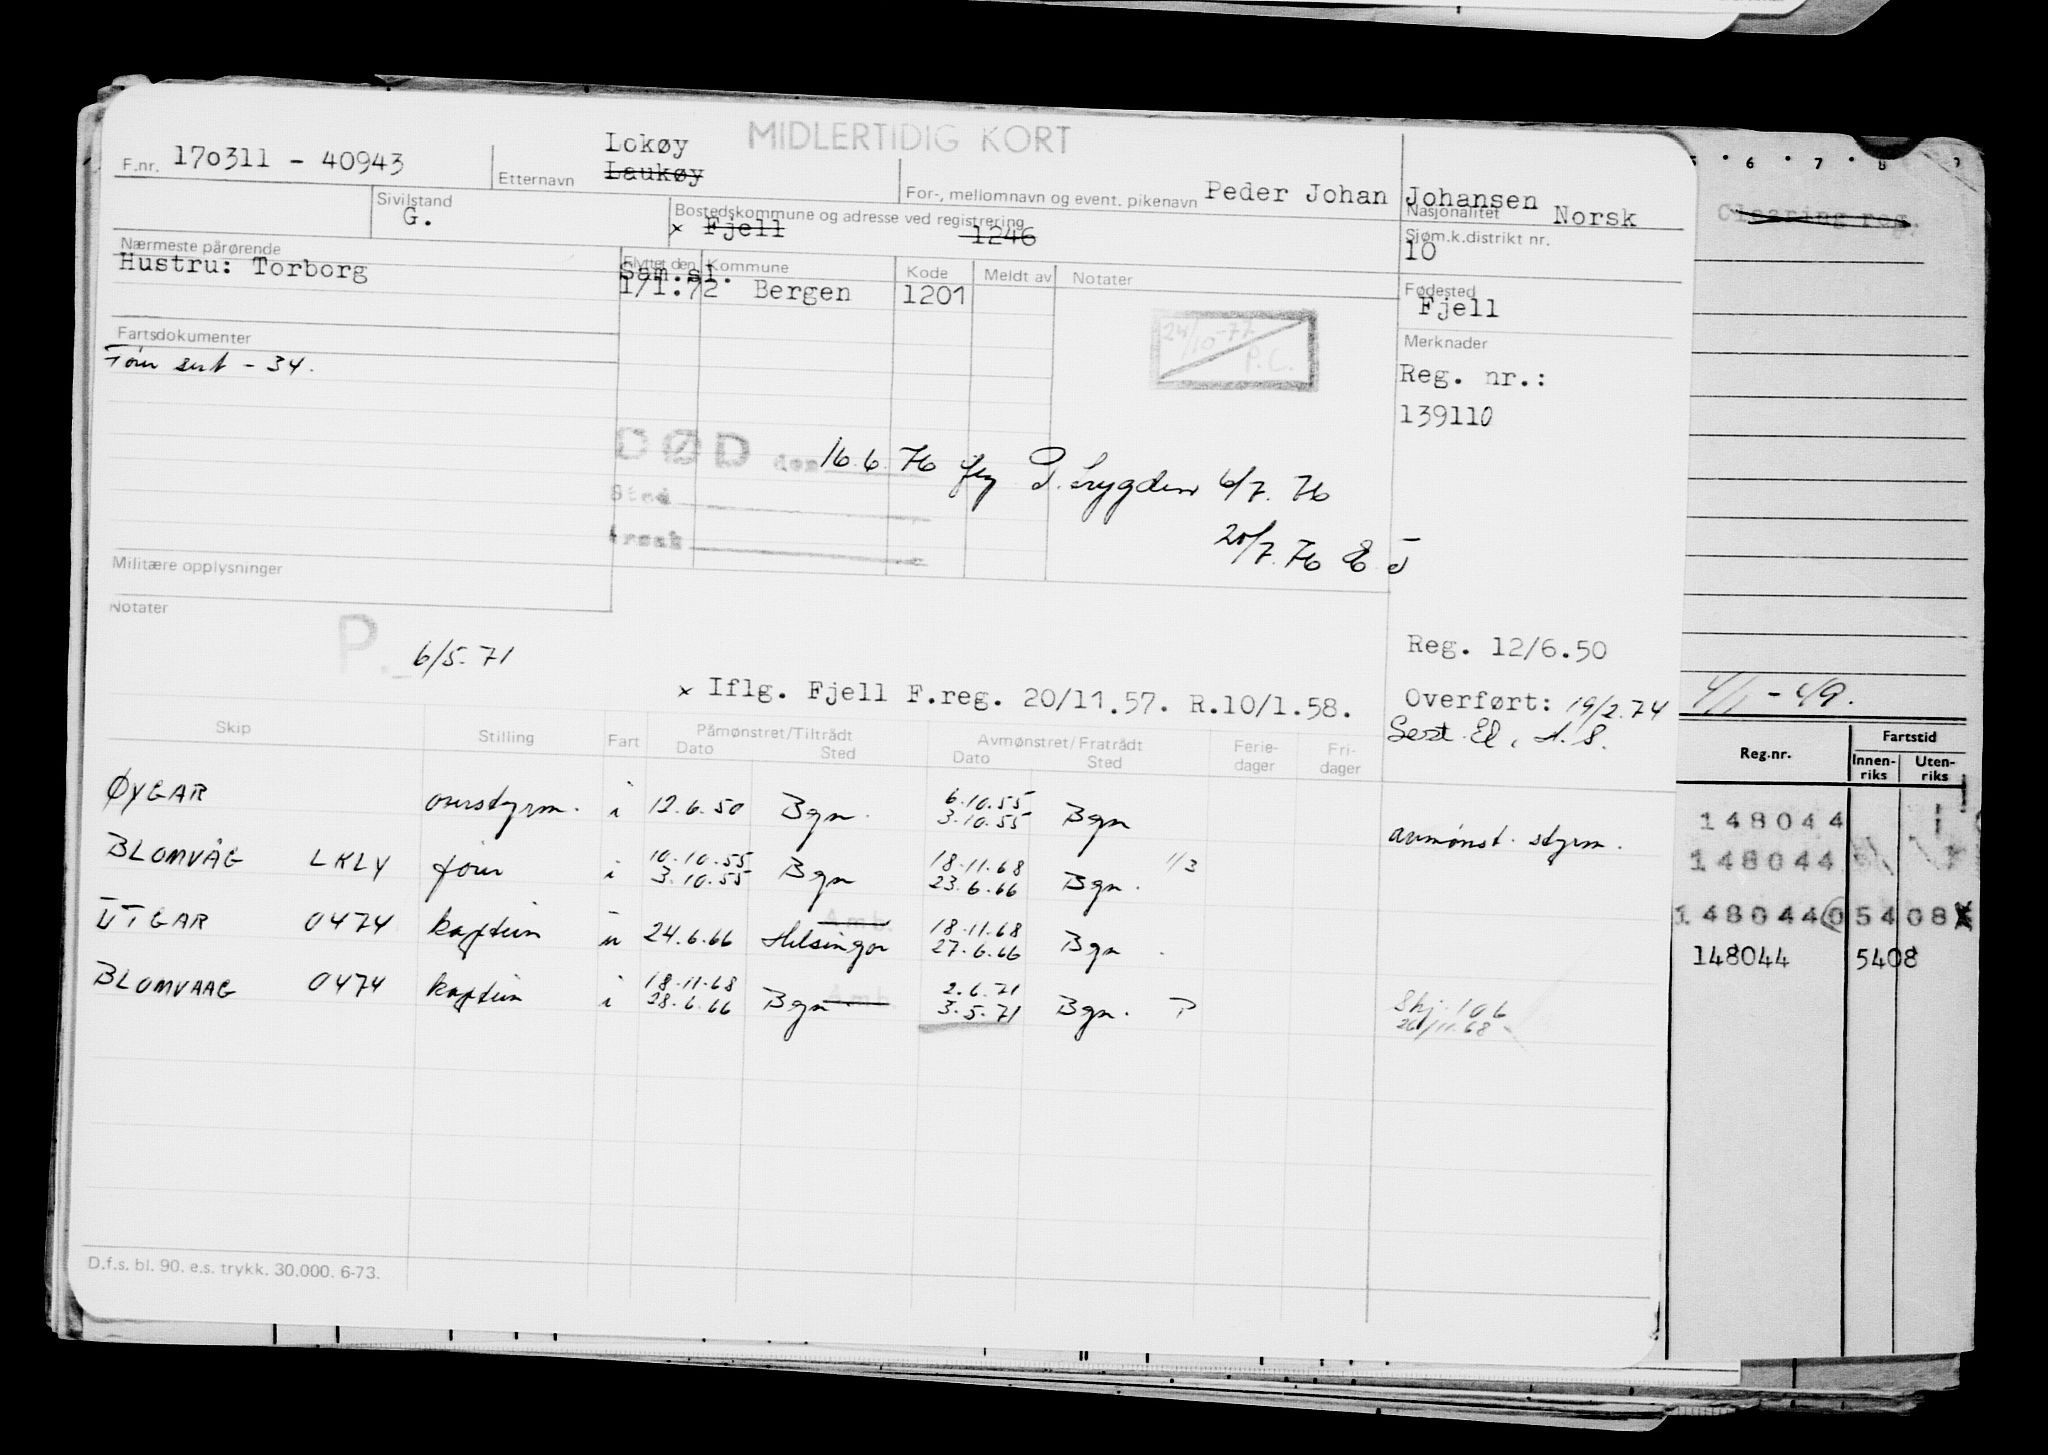 MIDLERTIDIG KORT
F.nr. 170311 - 40943
Etternavn Lokøy
Laukøy
For-, mellomnavn og event. pikenavn Peder Johan Johansen
Sivilstand
G.
Bostedskommune og adresse ved registrering
x Fjell 1246
Nasjonalitet Norsk
Sjøm.k.distrikt nr.
10
Nærmeste pårørende
Hustru: Torborg
Flyttet den Kommune Kode Meldt av Notater
Sam.sl.
1/1.72 Bergen 1201
Fødested
Fjell
Fartsdokumenter
sert - 34.
24/10-77
P.C.
Merknader
Reg. nr.:
139110
DØD den 16.6.76 6/7. 76
Sted
Årsak
20/7.76
Militære opplysninger
Notater
P. 6/5.71
Reg. 12/6.50
x Iflg. Fjell F.reg. 20/11.57. R.10/1.58.
Overført: 19/2.74
Skip Stilling Fart Påmønstret/Tiltrådt Avmønstret/Fratrådt Ferie- Fri-
Dato Sted Dato Sted dager dager
ØYGAR overstyrm. i 12.6.50 Bgn. 6.10.55 Bgn avmønst. styrm.
3.10.55
BLOMVÅG LKLY fører i 10.10.55 Bgn 18.11.68 Bgn. 1/3
3.10.55 23.6.66
UTGAR 0474 kaptein u 24.6.66 Helsingør Amb. 18.11.68 Bgn
27.6.66
BLOMVAAG 0474 kaptein i 18.11.68 Bgn Amb 2.6.71 Bgn. P
28.6.66 3.5.71
Skj. 106
D.f.s. bl. 90. e.s. trykk. 30.000. 6-73.
6 7 8
Clearing reg.
Reg.nr. Fartstid
Innen-
riks Uten-
riks
148044
148044
148044 5408
148044 5408